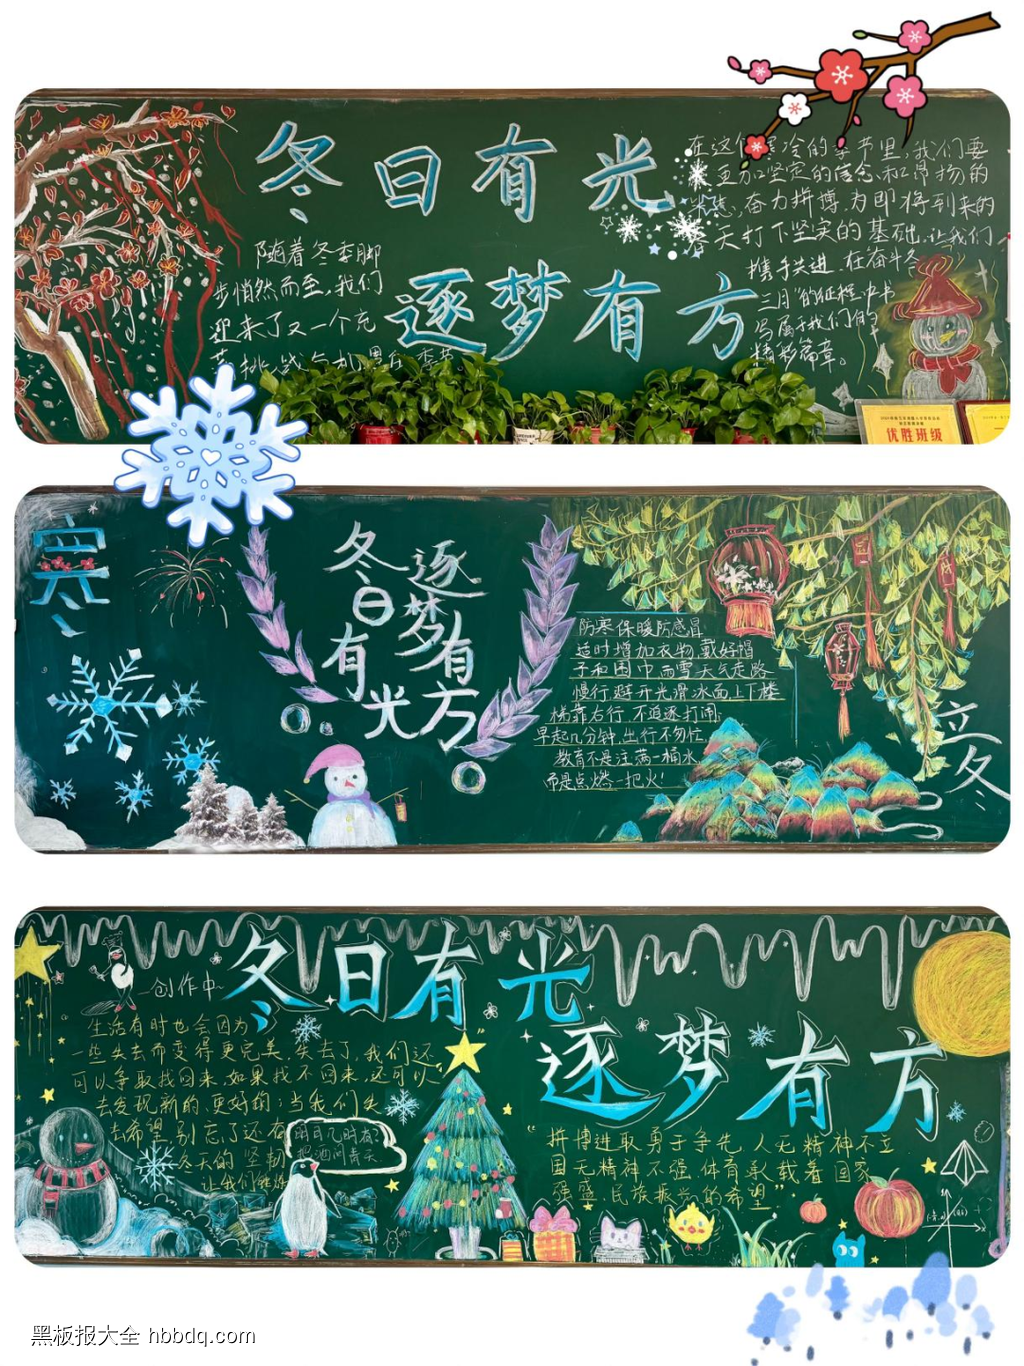 冬日有光
逐梦有方
随着冬季脚
步悄然而至,我们
迎来了又一个充
在这个寒冷的季节里,我们要
更加坚定的信念和昂扬的
,奋力拼搏,为即将到来的
春天打下坚实的基础,让我们
携手共进,在奋斗冬
三月"的征程中书
写属于我们的
精彩篇章。
优胜班级
寒
冬日有光
逐梦有方
防寒保暖防感冒
适时增加衣物,戴好帽
子和围巾,雨雪天气走路
慢行,避开光滑冰面,上下楼
梯靠右行,不追逐打闹;
早起几分钟,出行不匆忙,
教育不是注满一桶水,
而是点燃一把火!
立冬
冬日有光
逐梦有方
创作中~
生活有时也会因为
一些失去而变得更完美.失去了,我们还
可以争取找回来,如果找不回来,还可以
去发现新的、更好的;当我们失
去希望,别忘了还有
冬天的坚韧
让我们
明月几时有?
把酒问青天
"拼搏进取勇于争先,人无精神不立
国无精神不强.体育承载着国家
强盛.民族振兴的希望"
黑板报大全 hbbdq.com